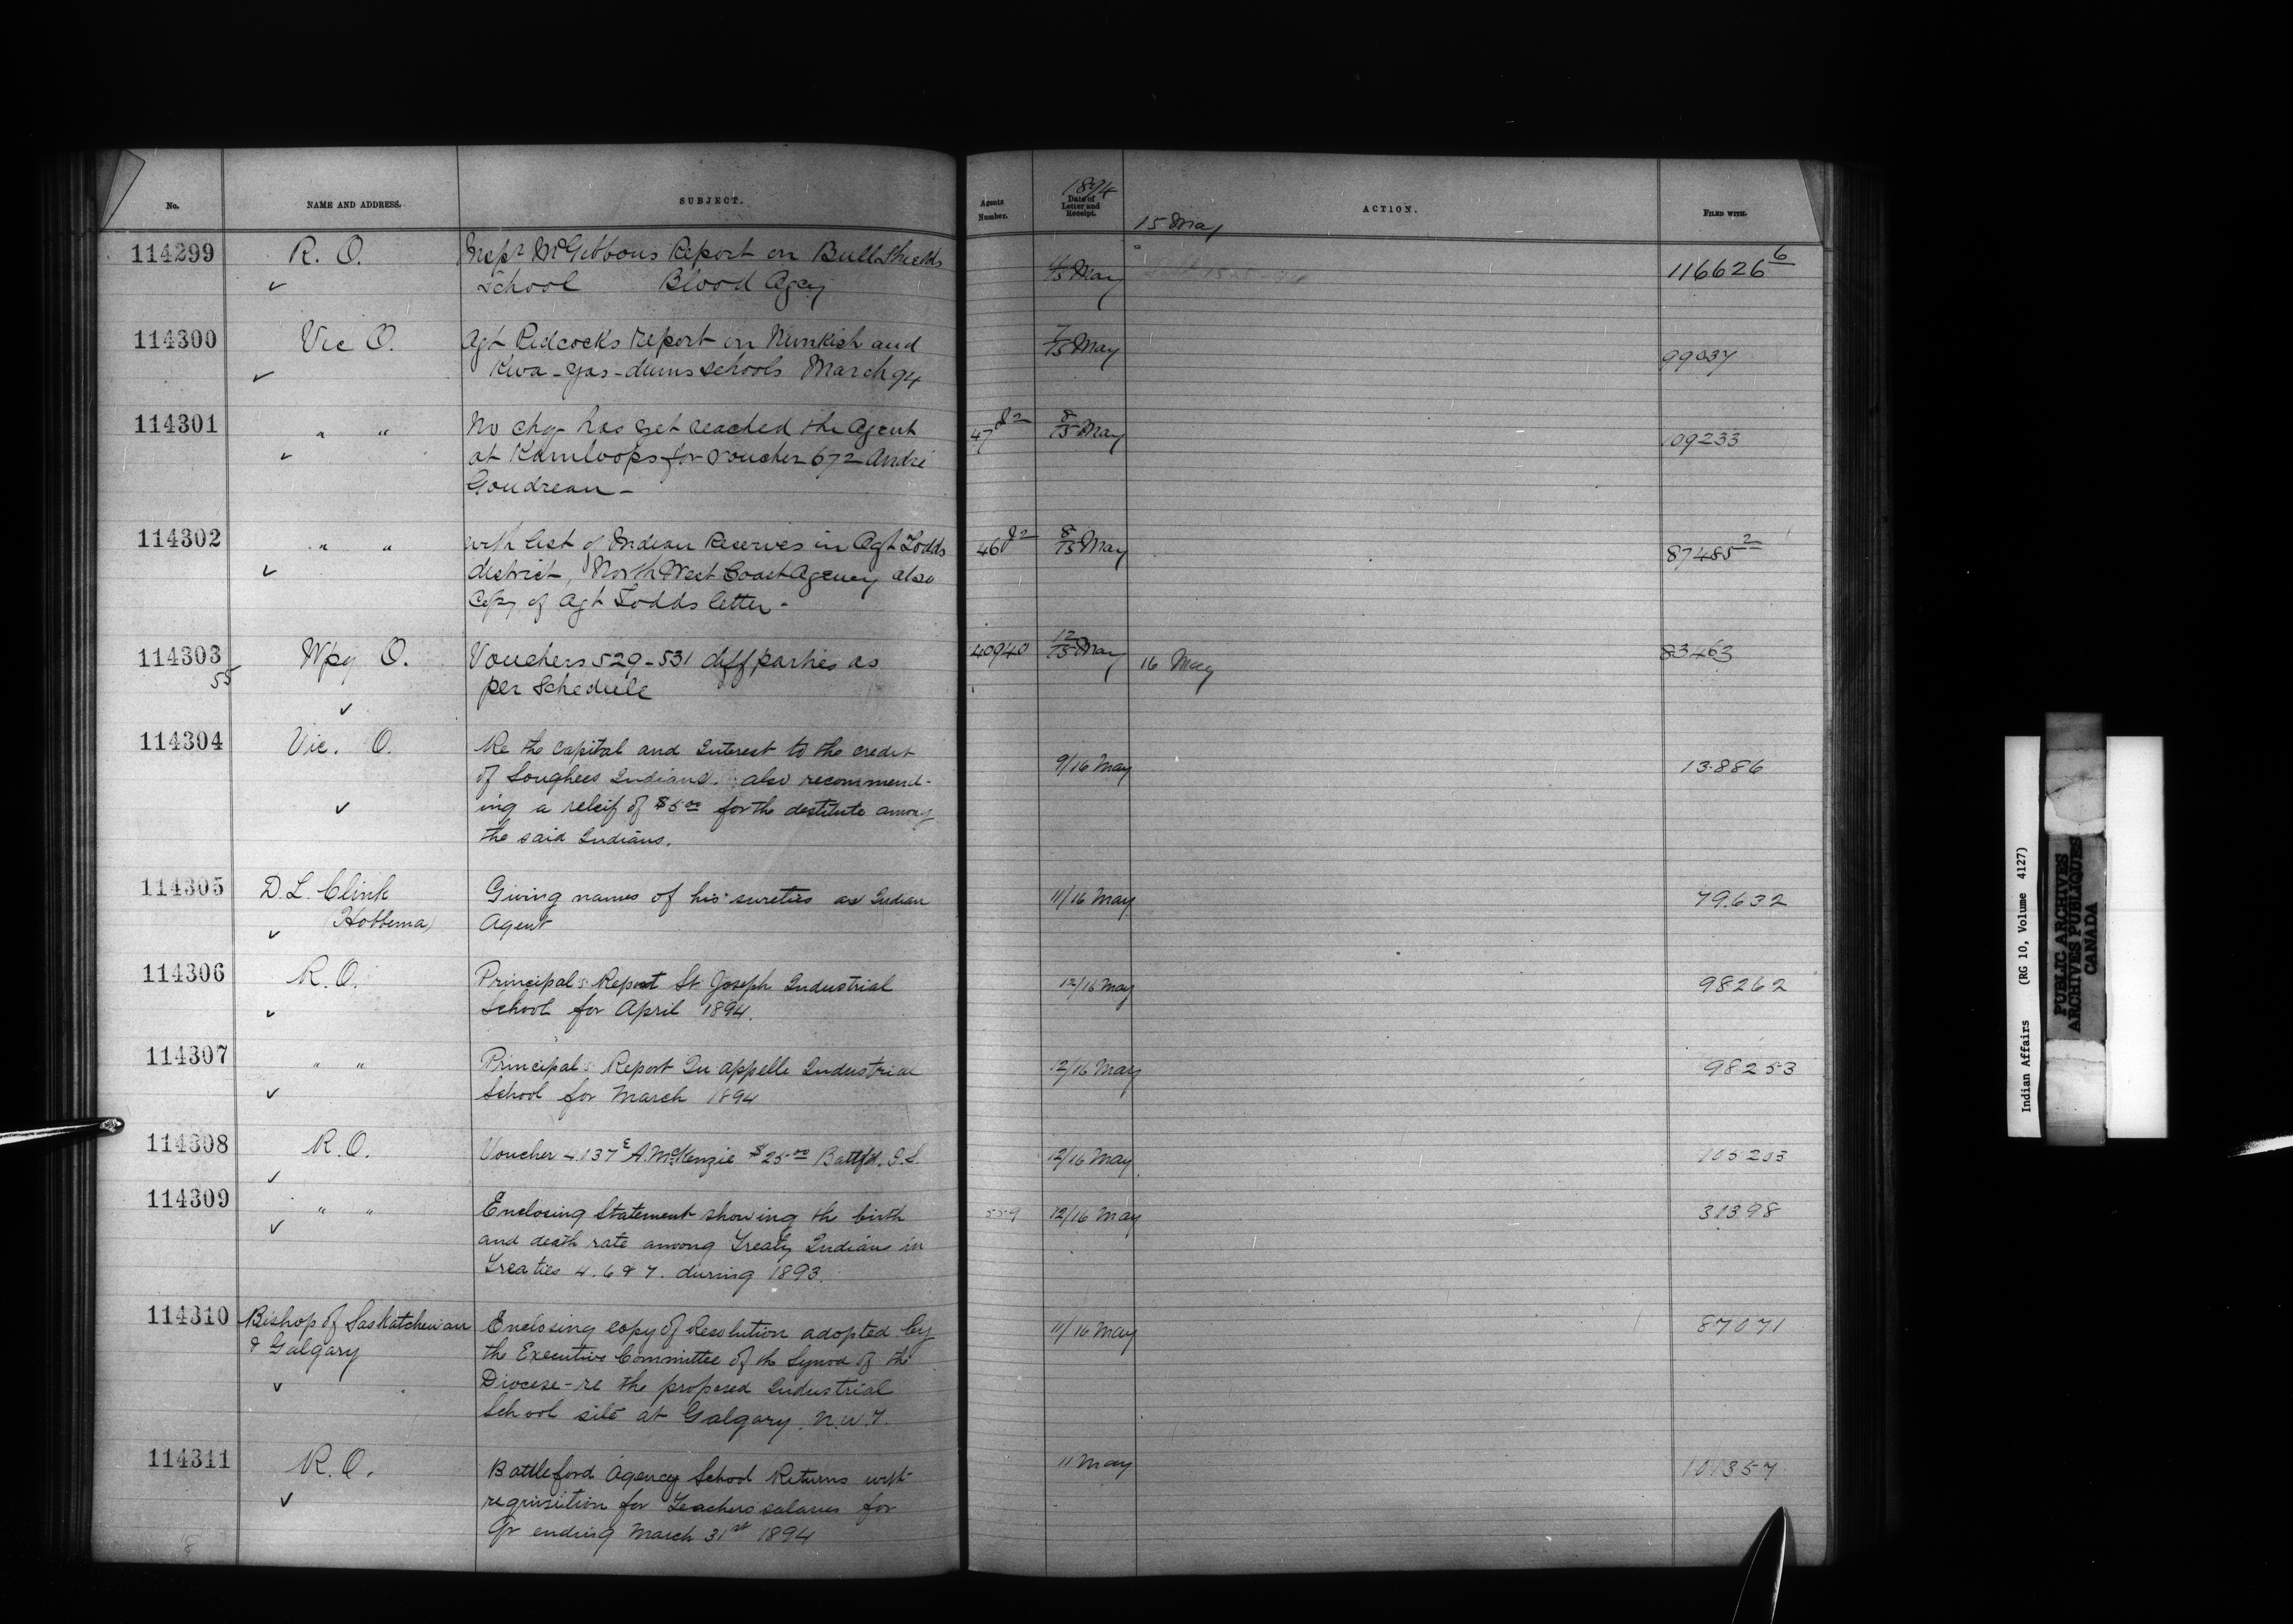 No. NAME AND ADDRESS. SUBJECT. Agents Number. 1894 Date of Letter and Receipt. ACTION. FILED WITH.
15 May
114299 R. O. Inspr McGibbons Report on Bull Shields 4/15 May 116626 6
✓ School Blood Agcy
114300 Vic O. Agt Pidcocks report on Nimkish and 7/15 May 99037
✓ Kwa-gas-dums schools March 94
114301 " " No chq has yet reached the Agent 47 8/15 May 109233
✓ at Kamloops for voucher 672 André
Goudreau -
114302 " " with list of Indian Reserves in Agt Todds 46 8/15 May 87485 2
✓ district, North West Coast Agency also
Copy of Agt Todds letter -
114303 Wpg O. Vouchers 529-531 diff parties as 40940 12/15 May 16 May 83463
55 per Schedule
✓
114304 Vic. O. Re the capital and Interest to the credit
of Songhees Indians. also recommend- 9/16 May 13.886
✓ ing a releif of $5 00 for the destitute among
the said Indians.
114305 D. L. Clink Giving names of his sureties as Indian 11/16 May 79.632
(Hobbema) Agent
✓
114306 R. O. Principals Report St. Joseph Industrial 12/16 May 98262
✓ School for April 1894.
114307 " " Principals Report Qu'appelle Industrial 12/16 May 98253
✓ School for March 1894
114308 R. O. Voucher 4137 E A. McKenzie $25 00 Battlfd. I. S. 12/16 May 105203
✓
114309 " " Enclosing Statement showing the birth 559 12/16 May 31398
✓ and death rate among Treaty Indians in
Treaties 4. 6 & 7. during 1893.
114310 Bishop of Saskatchewan Enclosing copy of Resolution adopted by 11/16 May 87071
& Calgary the Executive Committee of the Synod of the
✓ Diocese - re the proposed Industrial
School site at Calgary. N.W.T.
114311 R. O. Battleford Agency School Returns with 11 May
✓ requisition for Teachers salaries for
Qr ending March 31st 1894
Indian Affairs (RG 10, Volume 4127)
PUBLIC ARCHIVES
ARCHIVES PUBLIQUES
CANADA